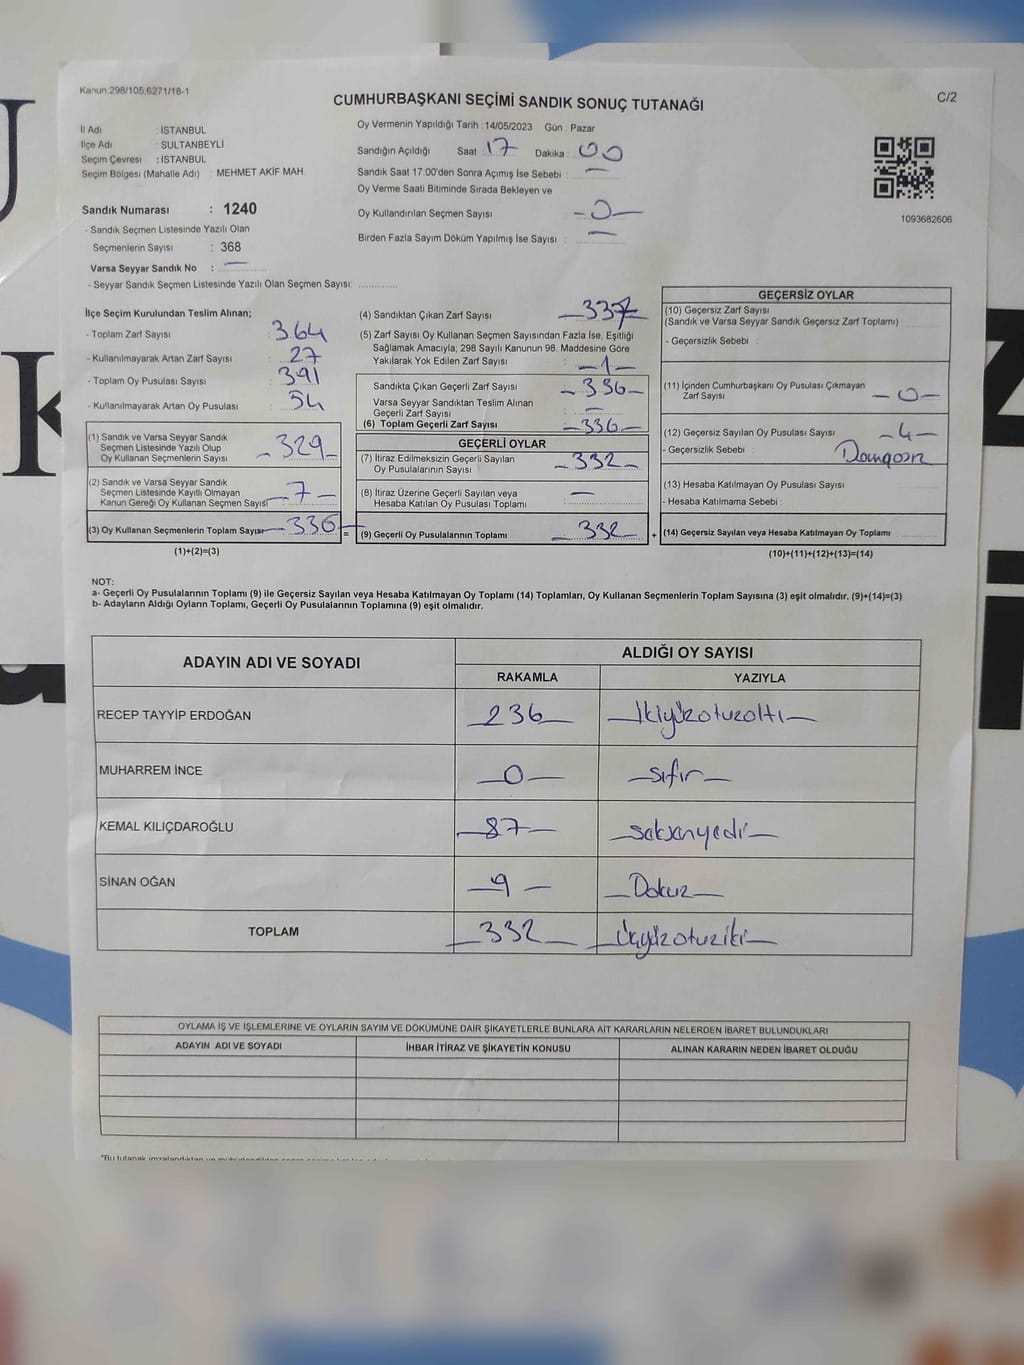 Kanun 298/105,6271/18-1
CUMHURBAŞKANI SEÇİMİ SANDIK SONUÇ TUTANAĞI
C/2
İl Adı : İSTANBUL
İlçe Adı : SULTANBEYLİ
Seçim Çevresi : İSTANBUL
Seçim Bölgesi (Mahalle Adı) : MEHMET AKİF MAH
Sandık Numarası : 1240
- Sandık Seçmen Listesinde Yazılı Olan
Seçmenlerin Sayısı : 368
Varsa Seyyar Sandık No : —
- Seyyar Sandık Seçmen Listesinde Yazılı Olan Seçmen Sayısı: ............
Oy Vermenin Yapıldığı Tarih : 14/05/2023 Gün : Pazar
Sandığın Açıldığı Saat : 17 Dakika : 00
Sandık Saat 17:00'den Sonra Açımış İse Sebebi : —
Oy Verme Saati Bitiminde Sırada Bekleyen ve
Oy Kullandırılan Seçmen Sayısı -0-
Birden Fazla Sayım Döküm Yapılmış İse Sayısı : —
1093682606
İlçe Seçim Kurulundan Teslim Alınan;
- Toplam Zarf Sayısı : 364
- Kullanılmayarak Artan Zarf Sayısı : 27
- Toplam Oy Pusulası Sayısı : 391
- Kullanılmayarak Artan Oy Pusulası : 54
(1) Sandık ve Varsa Seyyar Sandık
Seçmen Listesinde Yazılı Olup
Oy Kullanan Seçmenlerin Sayısı -329-
(2) Sandık ve Varsa Seyyar Sandık
Seçmen Listesinde Kayıtlı Olmayan
Kanun Gereği Oy Kullanan Seçmen Sayısı -7-
(3) Oy Kullanan Seçmenlerin Toplam Sayısı -336- =
(1)+(2)=(3)
(4) Sandıktan Çıkan Zarf Sayısı -337-
(5) Zarf Sayısı Oy Kullanan Seçmen Sayısından Fazla İse, Eşitliği
Sağlamak Amacıyla; 298 Sayılı Kanunun 98. Maddesine Göre
Yakılarak Yok Edilen Zarf Sayısı : -1-
Sandıkta Çıkan Geçerli Zarf Sayısı : -336-
Varsa Seyyar Sandıktan Teslim Alınan
Geçerli Zarf Sayısı : —
(6) Toplam Geçerli Zarf Sayısı -336-
GEÇERLİ OYLAR
(7) İtiraz Edilmeksizin Geçerli Sayılan
Oy Pusulalarının Sayısı -332-
(8) İtiraz Üzerine Geçerli Sayılan veya
Hesaba Katılan Oy Pusulası Toplamı —
(9) Geçerli Oy Pusulalarının Toplamı -332- +
GEÇERSİZ OYLAR
(10) Geçersiz Zarf Sayısı
(Sandık ve Varsa Seyyar Sandık Geçersiz Zarf Toplamı) :
- Geçersizlik Sebebi :
(11) İçinden Cumhurbaşkanı Oy Pusulası Çıkmayan
Zarf Sayısı -0-
(12) Geçersiz Sayılan Oy Pusulası Sayısı -4-
- Geçersizlik Sebebi :
(13) Hesaba Katılmayan Oy Pusulası Sayısı
- Hesaba Katılmama Sebebi :
(14) Geçersiz Sayılan veya Hesaba Katılmayan Oy Toplamı
(10)+(11)+(12)+(13)=(14)
NOT:
a- Geçerli Oy Pusulalarının Toplamı (9) ile Geçersiz Sayılan veya Hesaba Katılmayan Oy Toplamı (14) Toplamları, Oy Kullanan Seçmenlerin Toplam Sayısına (3) eşit olmalıdır. (9)+(14)=(3)
b- Adayların Aldığı Oyların Toplamı, Geçerli Oy Pusulalarının Toplamına (9) eşit olmalıdır.
ADAYIN ADI VE SOYADI
ALDIĞI OY SAYISI
RAKAMLA YAZIYLA
RECEP TAYYİP ERDOĞAN -236- -İkiyüzotuzaltı-
MUHARREM İNCE -0- -sıfır-
KEMAL KILIÇDAROĞLU -87- -seksenyedi-
SİNAN OĞAN -9- -Dokuz-
TOPLAM -332- -Üçyüzotuziki-
OYLAMA İŞ VE İŞLEMLERİNE VE OYLARIN SAYIM VE DÖKÜMÜNE DAİR ŞİKAYETLERLE BUNLARA AİT KARARLARIN NELERDEN İBARET BULUNDUKLARI
ADAYIN ADI VE SOYADI İHBAR İTİRAZ VE ŞİKAYETİN KONUSU ALINAN KARARIN NEDEN İBARET OLDUĞU